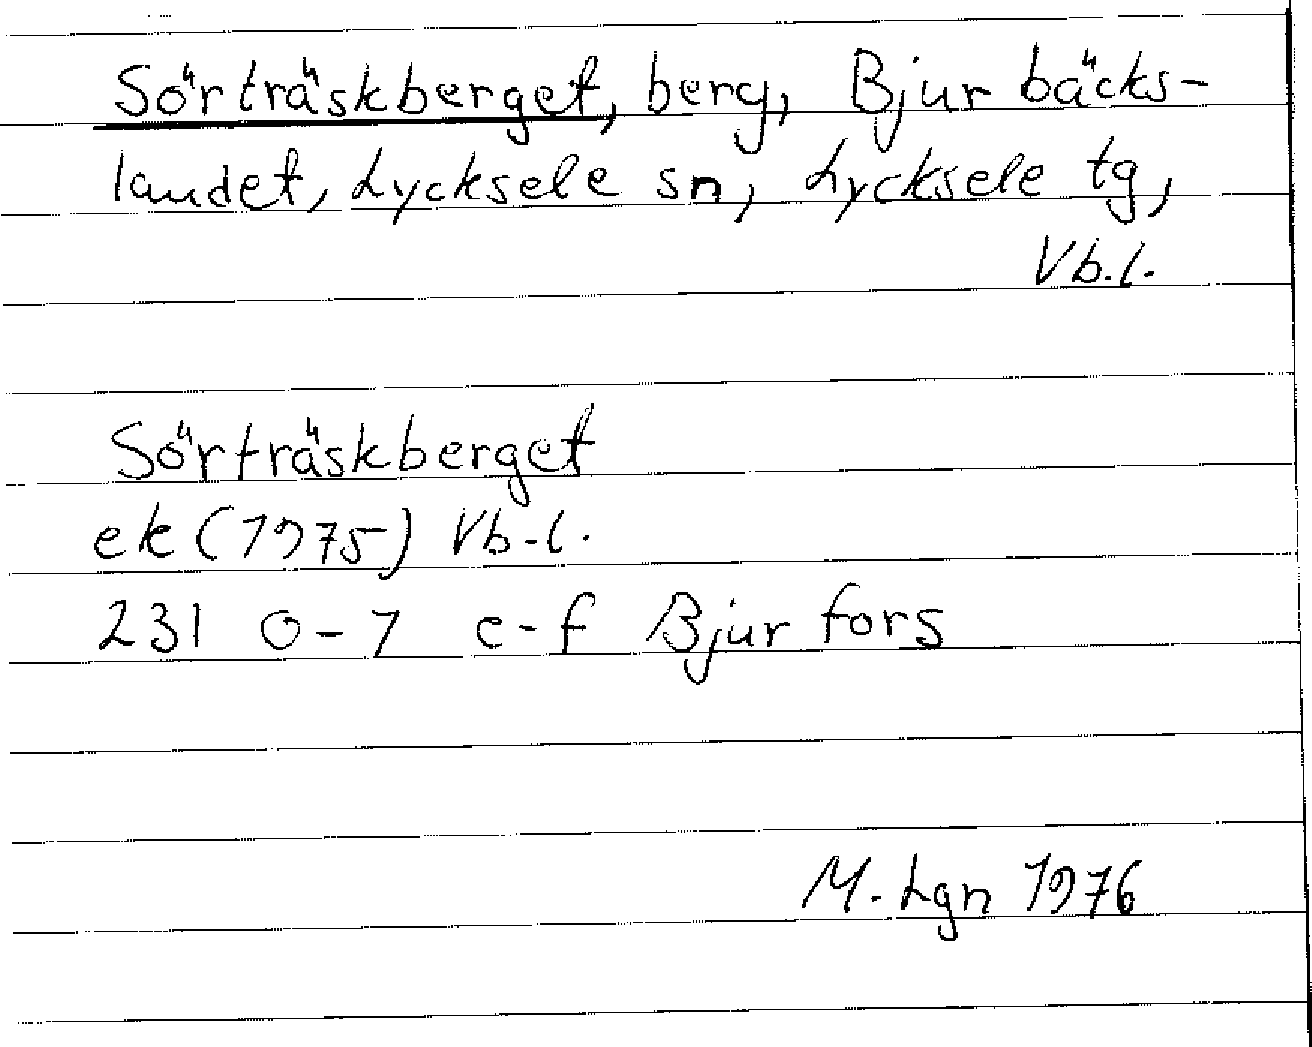 Sörträskberget, berg, Bjurbäcks-
landet, Lycksele sn, Lycksele tg,
Vb.l.
Sörträskberget
ek (1975) Vb-l.
231 0-7 e-f Bjurfors
M. Lgn 1976